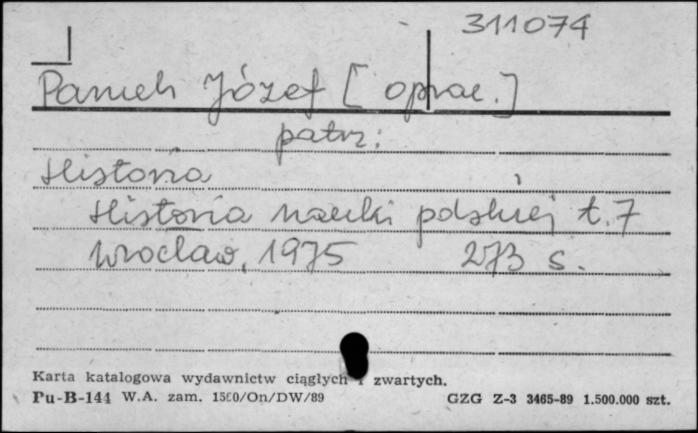 311074
Józef [oprac.]
patrz:
Historia
Historia nauki polskiej t. 7
Wrocław, 1975 273 s.
Karta katalogowa wydawnictw ciągłych i zwartych.
Pu-B-144 W.A. zam. 1560/On/DW/89 GZG Z-3 3465-89 1.500.000 szt.